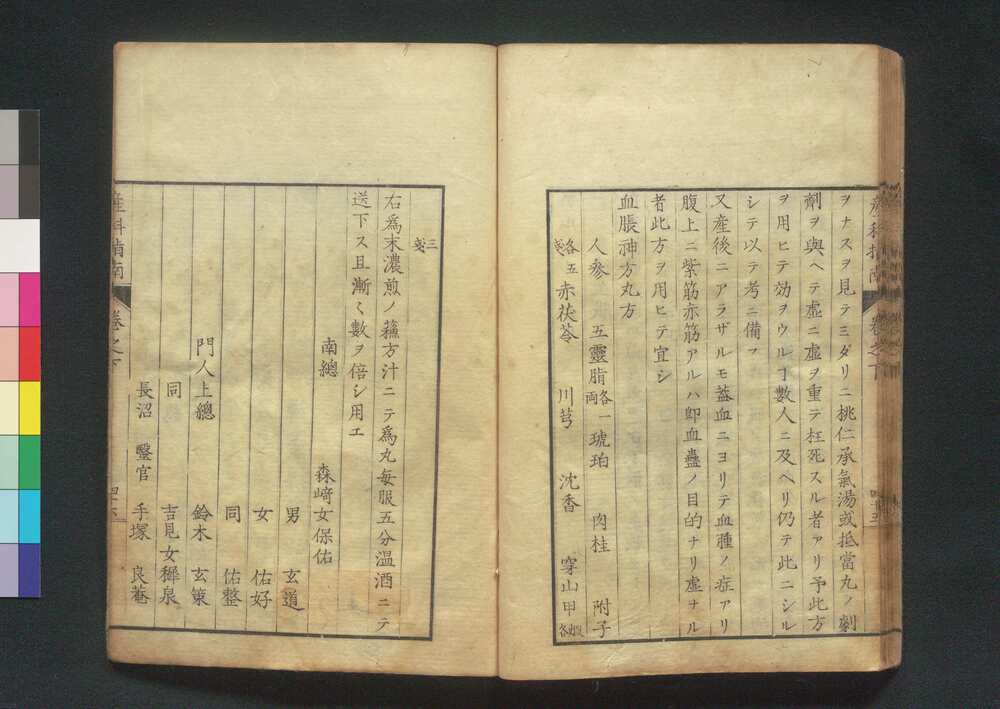 産科指南 卷之下
ヲナスヲ見テミダリニ桃仁承氣湯或抵當丸ノ劇
劑ヲ與ヘテ虛ニ虛ヲ重テ枉死スル者アリ予此方
ヲ用ヒテ効ヲウルヿ數人ニ及ヘリ仍テ此ニシル
シテ以テ考ニ備フ
又産後ニアラザルモ蓋血ニヨリテ血腫ノ症アリ
腹上ニ紫筋赤筋アルハ卽血蠱ノ目的ナリ虛ナル
者此方ヲ用ヒテ宜シ
血脹神方丸方
人參 五靈脂 各一兩 琥珀 肉桂 附子
各五 赤茯苓 川芎 沈香 穿山甲 煆各
三錢
右爲末濃煎ノ蘓方汁ニテ爲丸毎服五分溫酒ニテ
送下ス且漸〱數ヲ倍シ用エ
南總 森﨑女保佑
男 玄道
女 佑好
同 佑整
門人上總 鈴木 玄策
同 吉見女穉泉
長沼 醫官 手塚 良菴
産科指南 卷之下